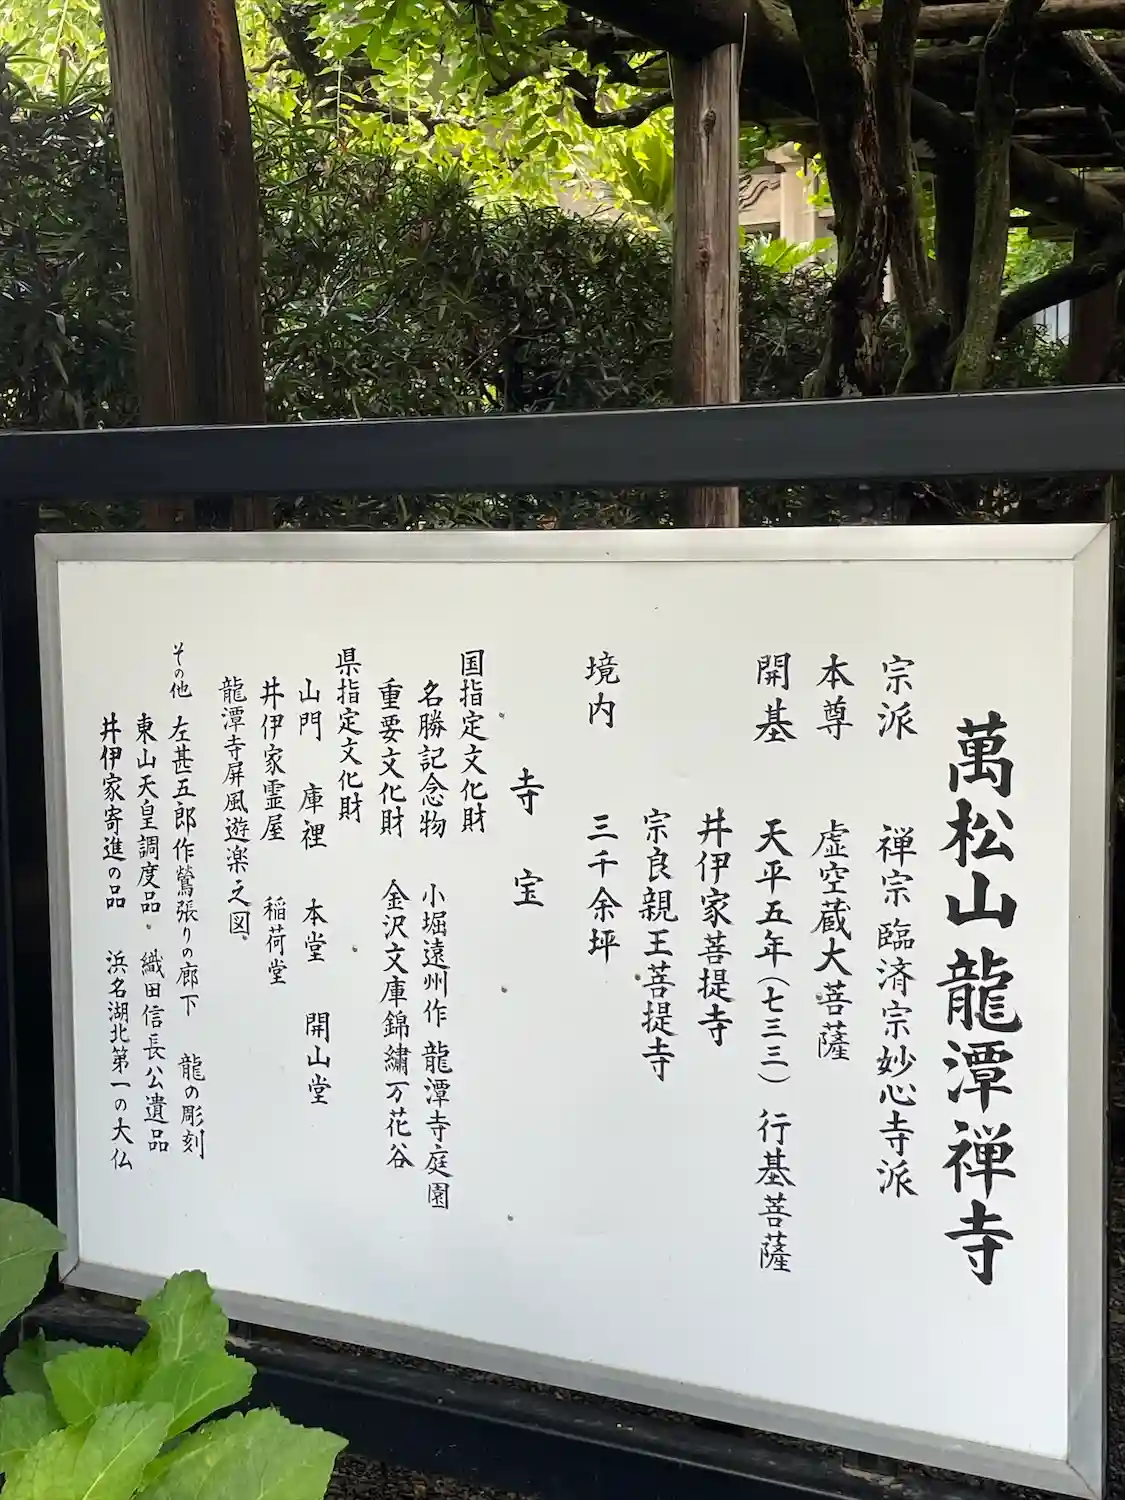 萬松山龍潭禅寺
宗派 禅宗臨済宗妙心寺派
本尊 虚空蔵大菩薩
開基 天平五年(七三三) 行基菩薩
井伊家菩提寺
宗良親王菩提寺
境内 三千余坪
寺宝
国指定文化財
名勝記念物 小堀遠州作 龍潭寺庭園
重要文化財 金沢文庫錦繍万花谷
県指定文化財
山門 庫裡 本堂 開山堂
井伊家霊屋 稲荷堂
龍潭寺屏風遊楽之図
その他 左甚五郎作鶯張りの廊下 龍の彫刻
東山天皇調度品 織田信長公遺品
井伊家寄進の品 浜名湖北第一の大仏